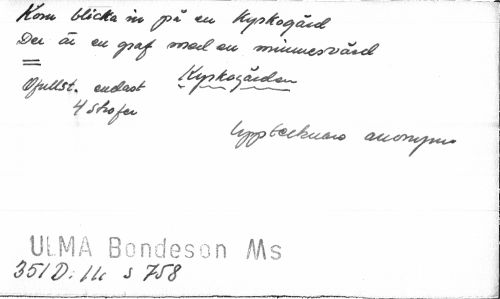 Kom blicka in på en Kyrkogård
Der är en graf med en minnesvård
Ofullst. endast Kyrkogården
4 Strofer
Upptecknare anonym
ULMA Bondeson Ms
351 D: 11c s 758